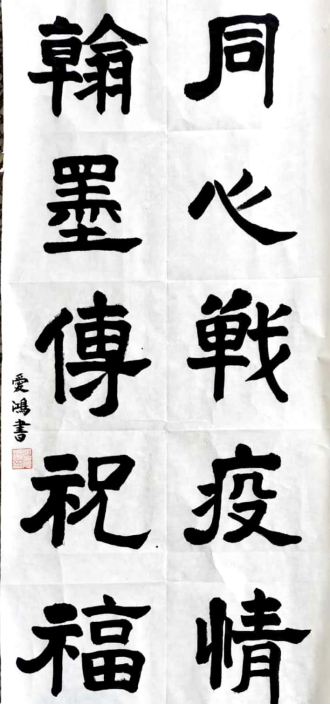 同心戰疫情
翰墨傳祝福
愛鴻書